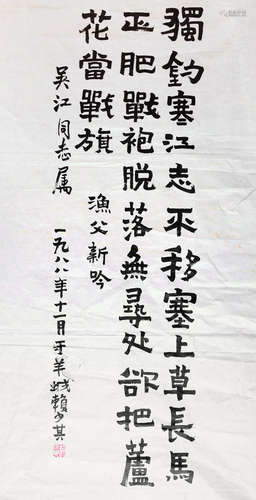 獨釣塞江志不移塞上草長馬
正肥戰袍脱落無尋处欲把蘆
花當戰旗
漁父新吟
吴江同志属
一九八八年十一月于羊城賴少其